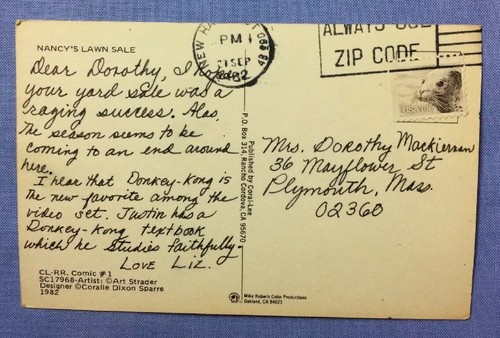 NANCY'S LAWN SALE
Dear Dorothy, I hope
your yard sale was a
raging success. Alas,
the season seems to be
coming to an end around
here.
I hear that Donkey-Kong is
the new favorite among the
video set. Justin has a
Donkey-Kong textbook
which he studies faithfully.
LOVE LIZ.
CL-RR. Comic #1
SC17968-Artist: ©Art Strader
Designer ©Coralie Dixon Sparre
1982
Published by Coral-Lee
P.O. Box 314, Rancho Cordova, CA 95670
Mike Roberts Color Productions
Oakland, CA 94623
NEW HA
PM
21 SEP
1982
ALWAYS USE
ZIP CODE
Mrs. Dorothy Mackiernan
36 Mayflower St
Plymouth, Mass.
02360